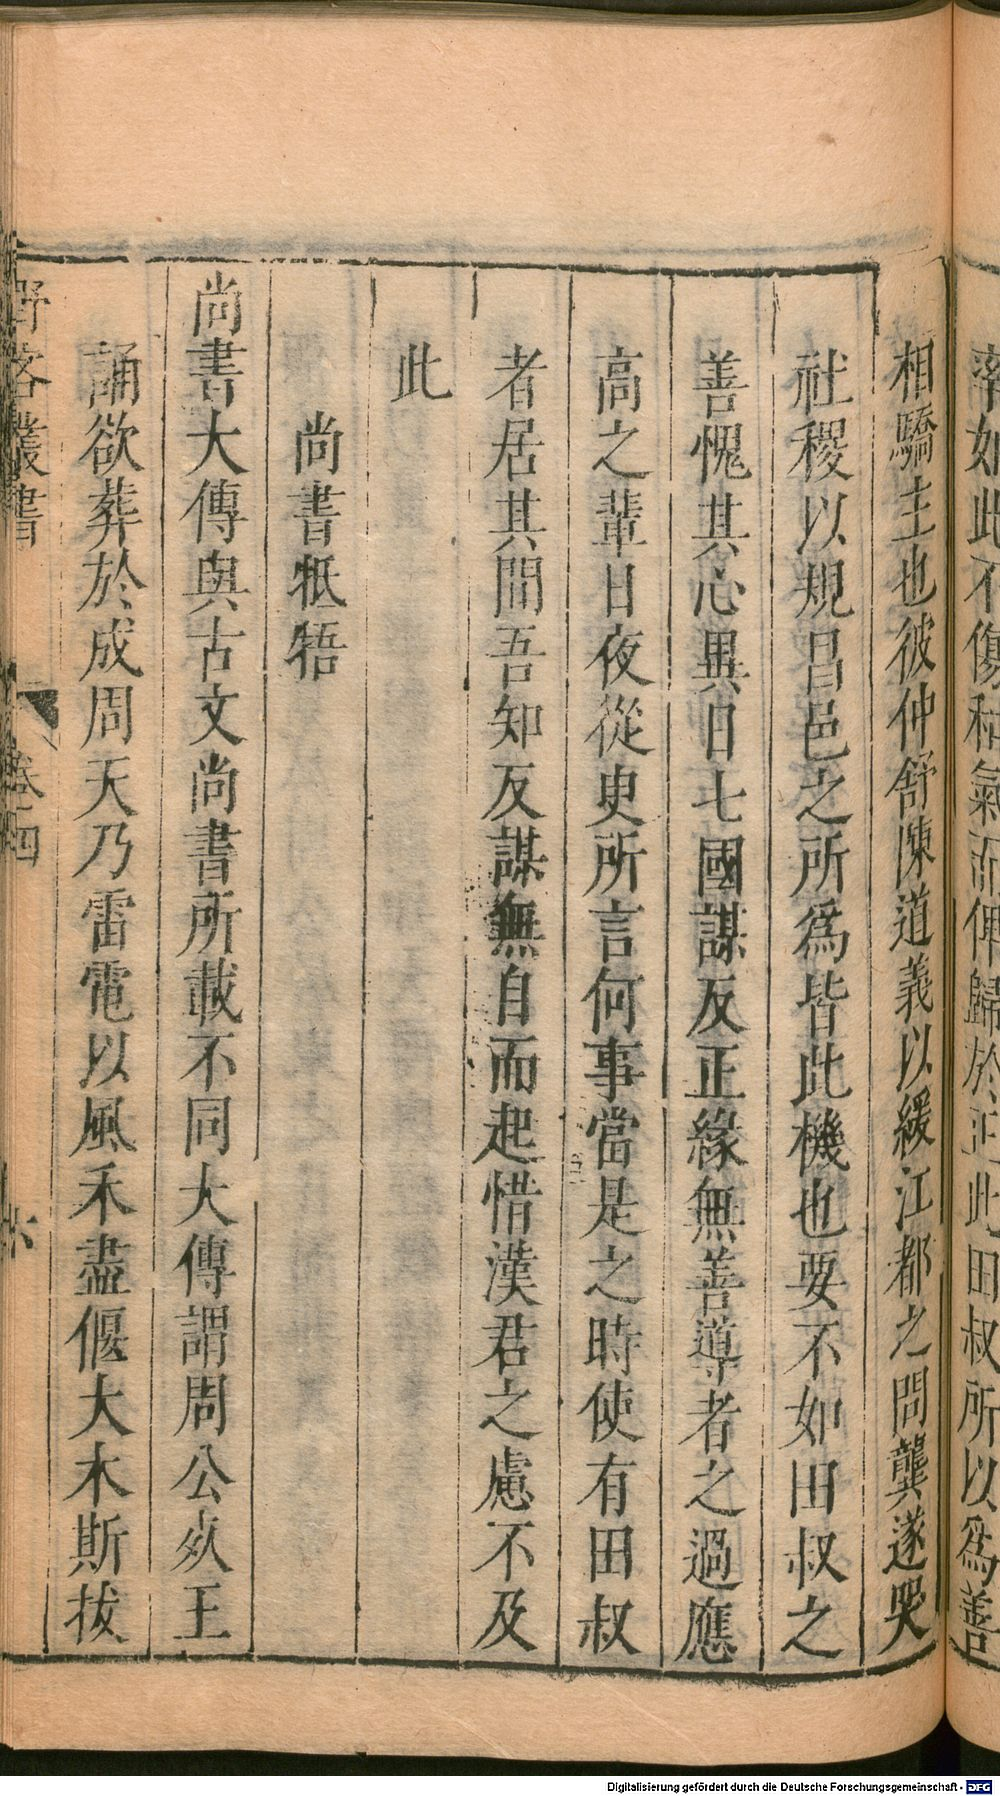 率如此不傷和氣而俾歸於正此田叔所以爲善
相驕主也彼仲舒陳道義以緩江都之問龔遂哭
社稷以規昌邑之所爲皆此機也要不如田叔之
善愧其心異日七國謀反正緣無善導者之過應
高之輩日夜從臾所言何事當是之時使有田叔
者居其間吾知反謀無自而起惜漢君之慮不及
此
尚書牴牾
尚書大傳與古文尚書所載不同大傳謂周公死王
誦欲葬於成周天乃雷電以風禾盡偃大木斯拔
野客叢書 卷十四 六
Digitalisierung gefördert durch die Deutsche Forschungsgemeinschaft - DFG